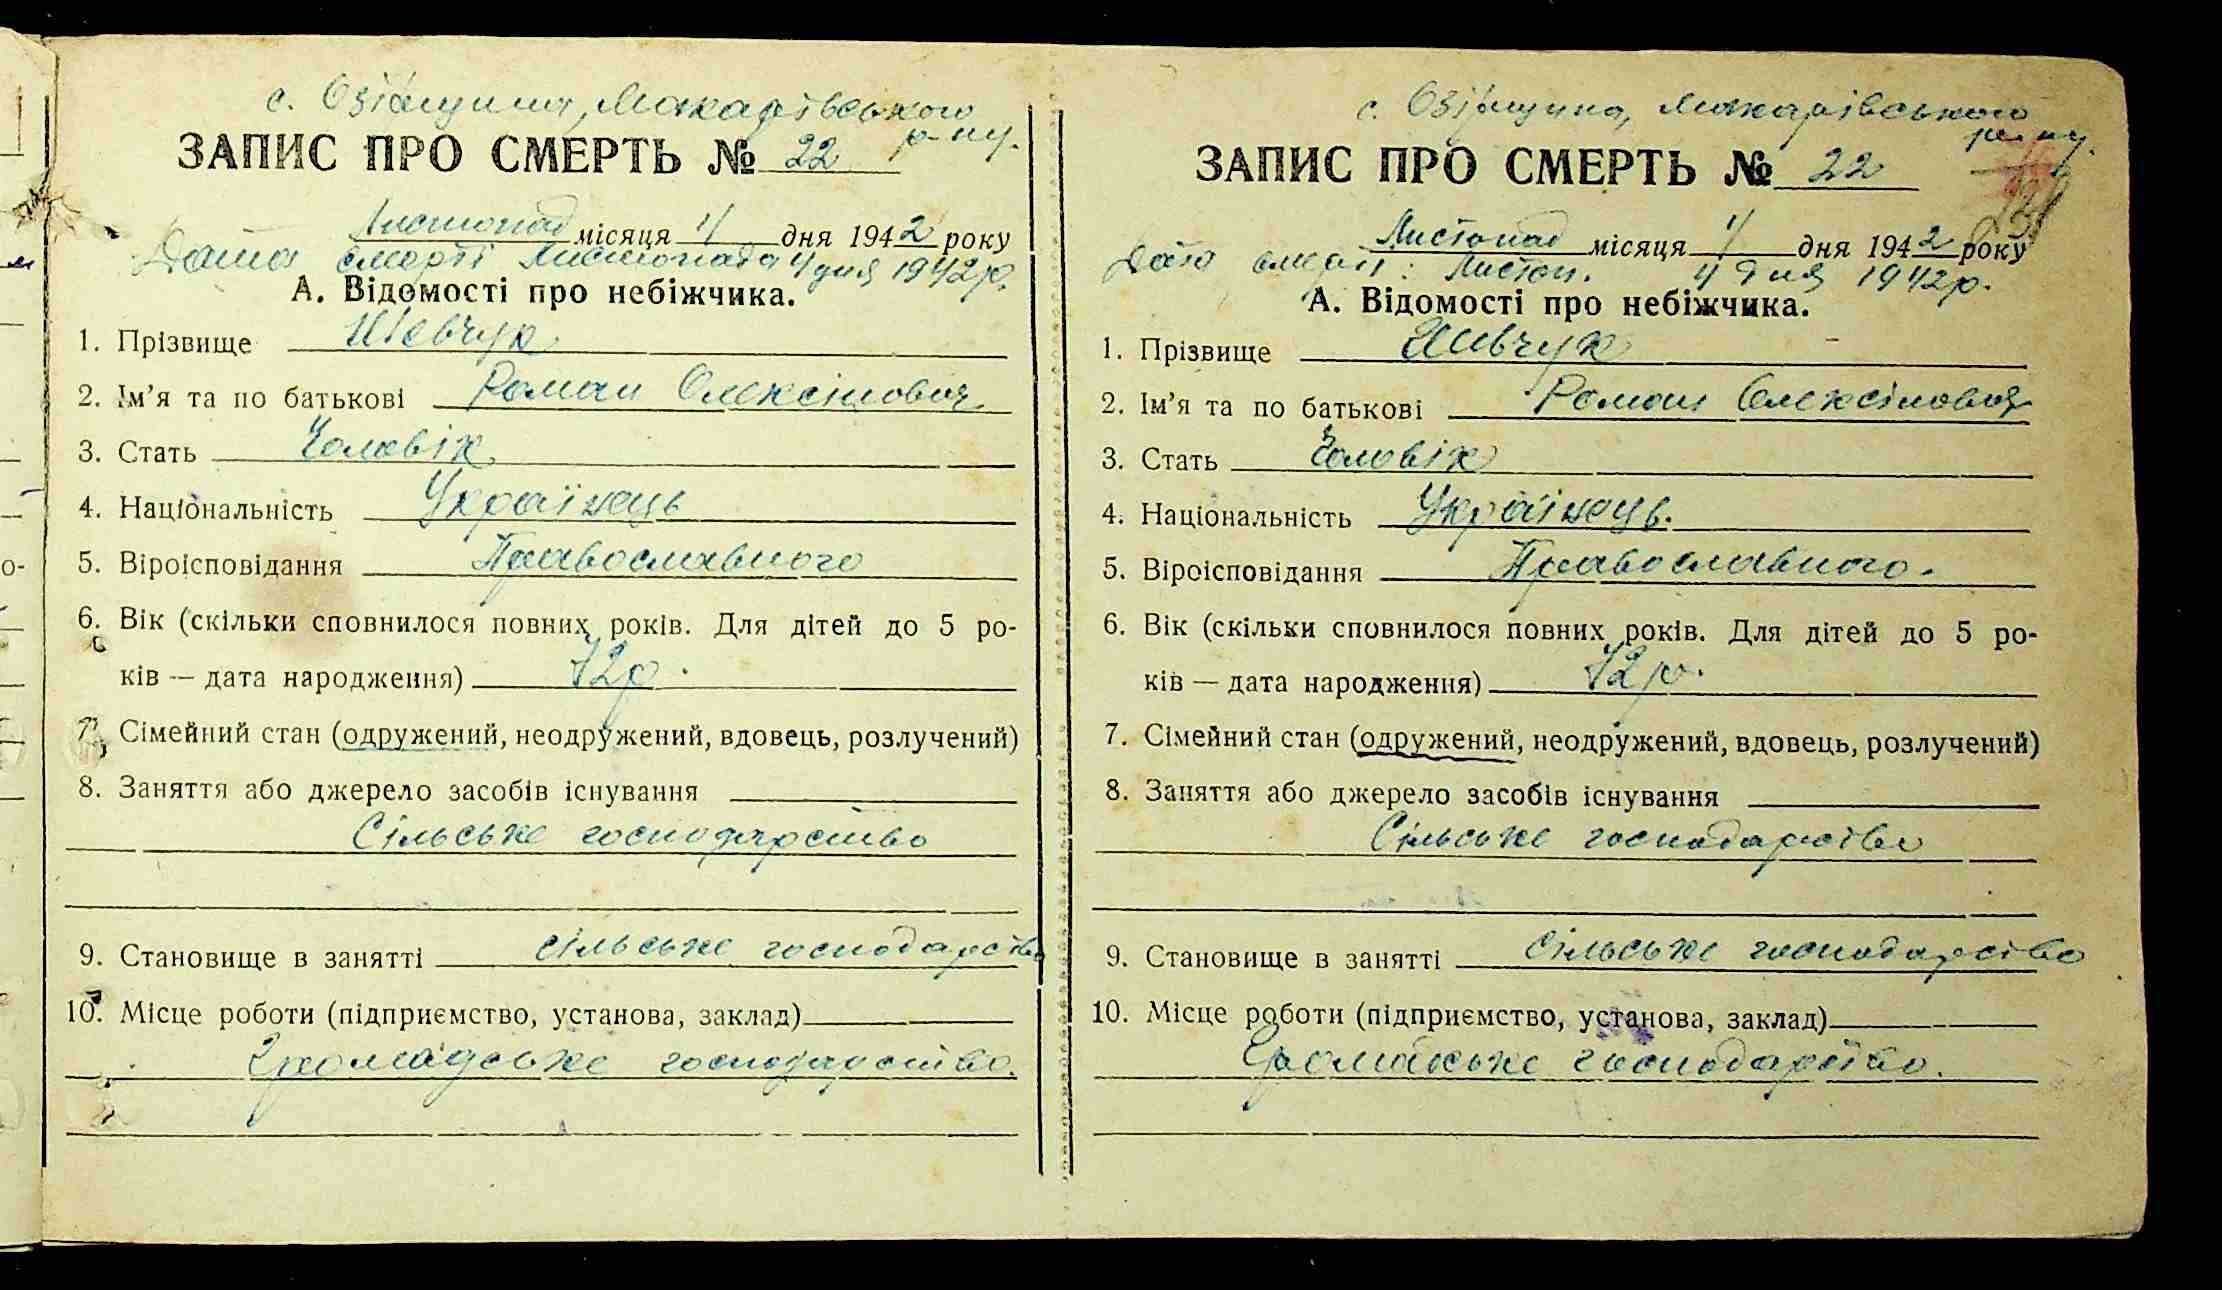 с. Озірщина, Макарівського
р-ну.
ЗАПИС ПРО СМЕРТЬ № 22
Листопад місяця 4 дня 1942 року
Дата смерті Листопада 4 дня 1942р.
А. Відомості про небіжчика.
1. Прізвище Шевчук
2. Ім’я та по батькові Роман Олексійович
3. Стать Чоловік
4. Національність Українець
5. Віроісповідання Православного
6. Вік (скільки сповнилося повних років. Для дітей до 5 ро-
ків — дата народження) 72р.
7. Сімейний стан (одружений, неодружений, вдовець, розлучений)
8. Заняття або джерело засобів існування
Сільське господарство
9. Становище в занятті сільське господарство
10. Місце роботи (підприємство, установа, заклад)
Громадське господарство.
с. Озірщина, Макарівського
р-ну.
ЗАПИС ПРО СМЕРТЬ № 22
Листопад місяця 4 дня 1942 року
Дата смерті: Листоп. 4 дня 1942р.
А. Відомості про небіжчика.
1. Прізвище Шевчук
2. Ім’я та по батькові Роман Олексійович
3. Стать Чоловік
4. Національність Українець.
5. Віроісповідання Православного.
6. Вік (скільки сповнилося повних років. Для дітей до 5 ро-
ків — дата народження) 72р.
7. Сімейний стан (одружений, неодружений, вдовець, розлучений)
8. Заняття або джерело засобів існування
Сільське господарство
9. Становище в занятті Сільське господарство
10. Місце роботи (підприємство, установа, заклад)
Громадське господарство.